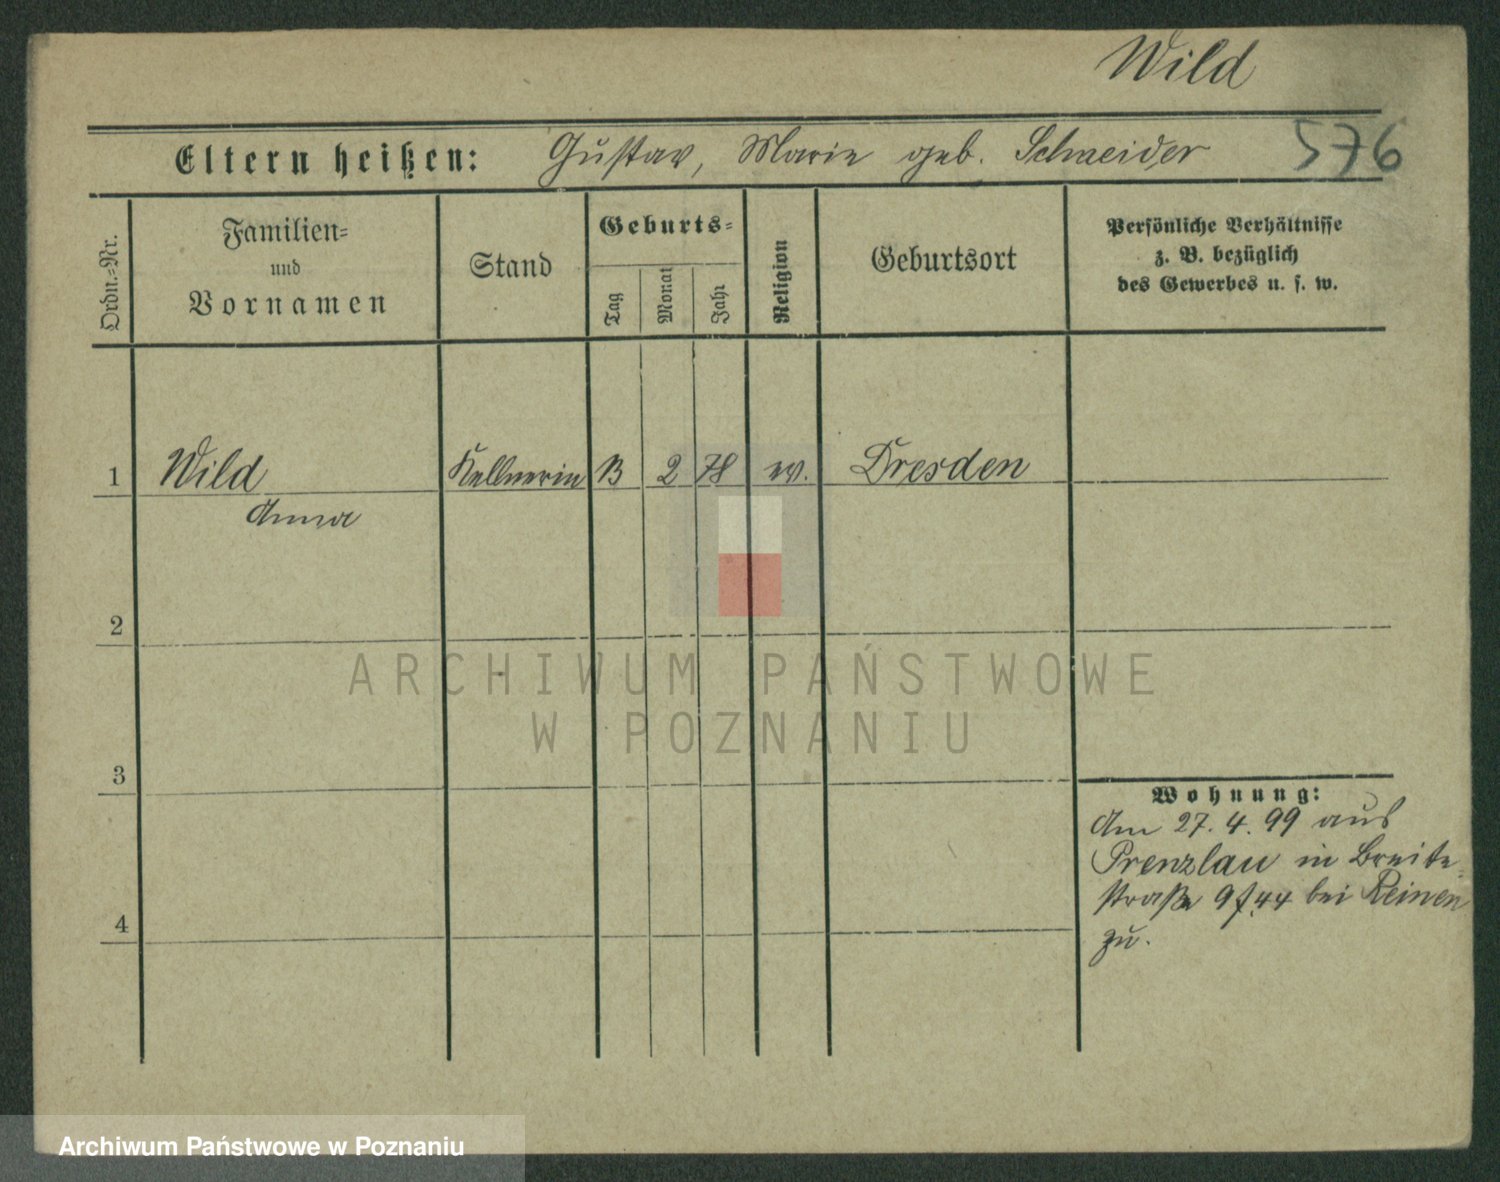 Wild
Eltern heißen: Gustav, Marie geb. Schneider 576
Ordn.=Nr.
Familien=
und
Vornamen
Stand
Geburts=
Tag
Monat
Jahr
Religion
Geburtsort
Persönliche Verhältnisse
z. B. bezüglich
des Gewerbes u. s. w.
1 Wild Kellnerin 13 2 78 ev. Dresden
Anna
2
3
4
Wohnung:
Am 27. 4. 99 aus
Prenzlau in Breite=
straße 9 44 bei Reinen
zu.
ARCHIWUM PAŃSTWOWE
W POZNANIU
Archiwum Państwowe w Poznaniu